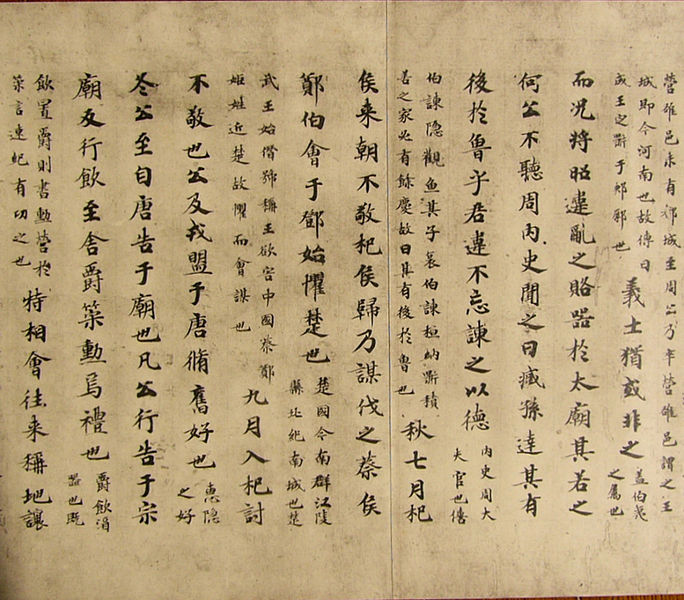 營雒邑未有郟城至周公乃卒營雒邑謂之王
城即今河南也故傳曰成王定鼎于郟鄏也義士猶或非之蓋伯夷之屬也
而况将昭違亂之賂器於太廟其若之
何公不聽周内史聞之曰臧孫達其有
後於魯乎君違不忘諫之以德内史周大夫官也僖
伯諫隐觀魚其子哀伯諫桓納鼎積善之家必有餘慶故曰其有後於魯也秋七月杞
侯来朝不敬杞侯歸乃謀伐之蔡侯
鄭伯會于鄧始懼楚也楚國今南群江陵縣北紀南城也楚
武王始僭號稱王欲害中國蔡鄭姬姓近楚故懼而會謀也九月入杞討
不敬也公及戎盟于唐脩舊好也惠隐之好
冬公至自唐告于廟也凡公行告于宗
廟反行飲至舍爵策勳焉禮也爵飲酒器也既
飲置爵則書勳勞於策言速紀有功之也特相會往来稱地讓